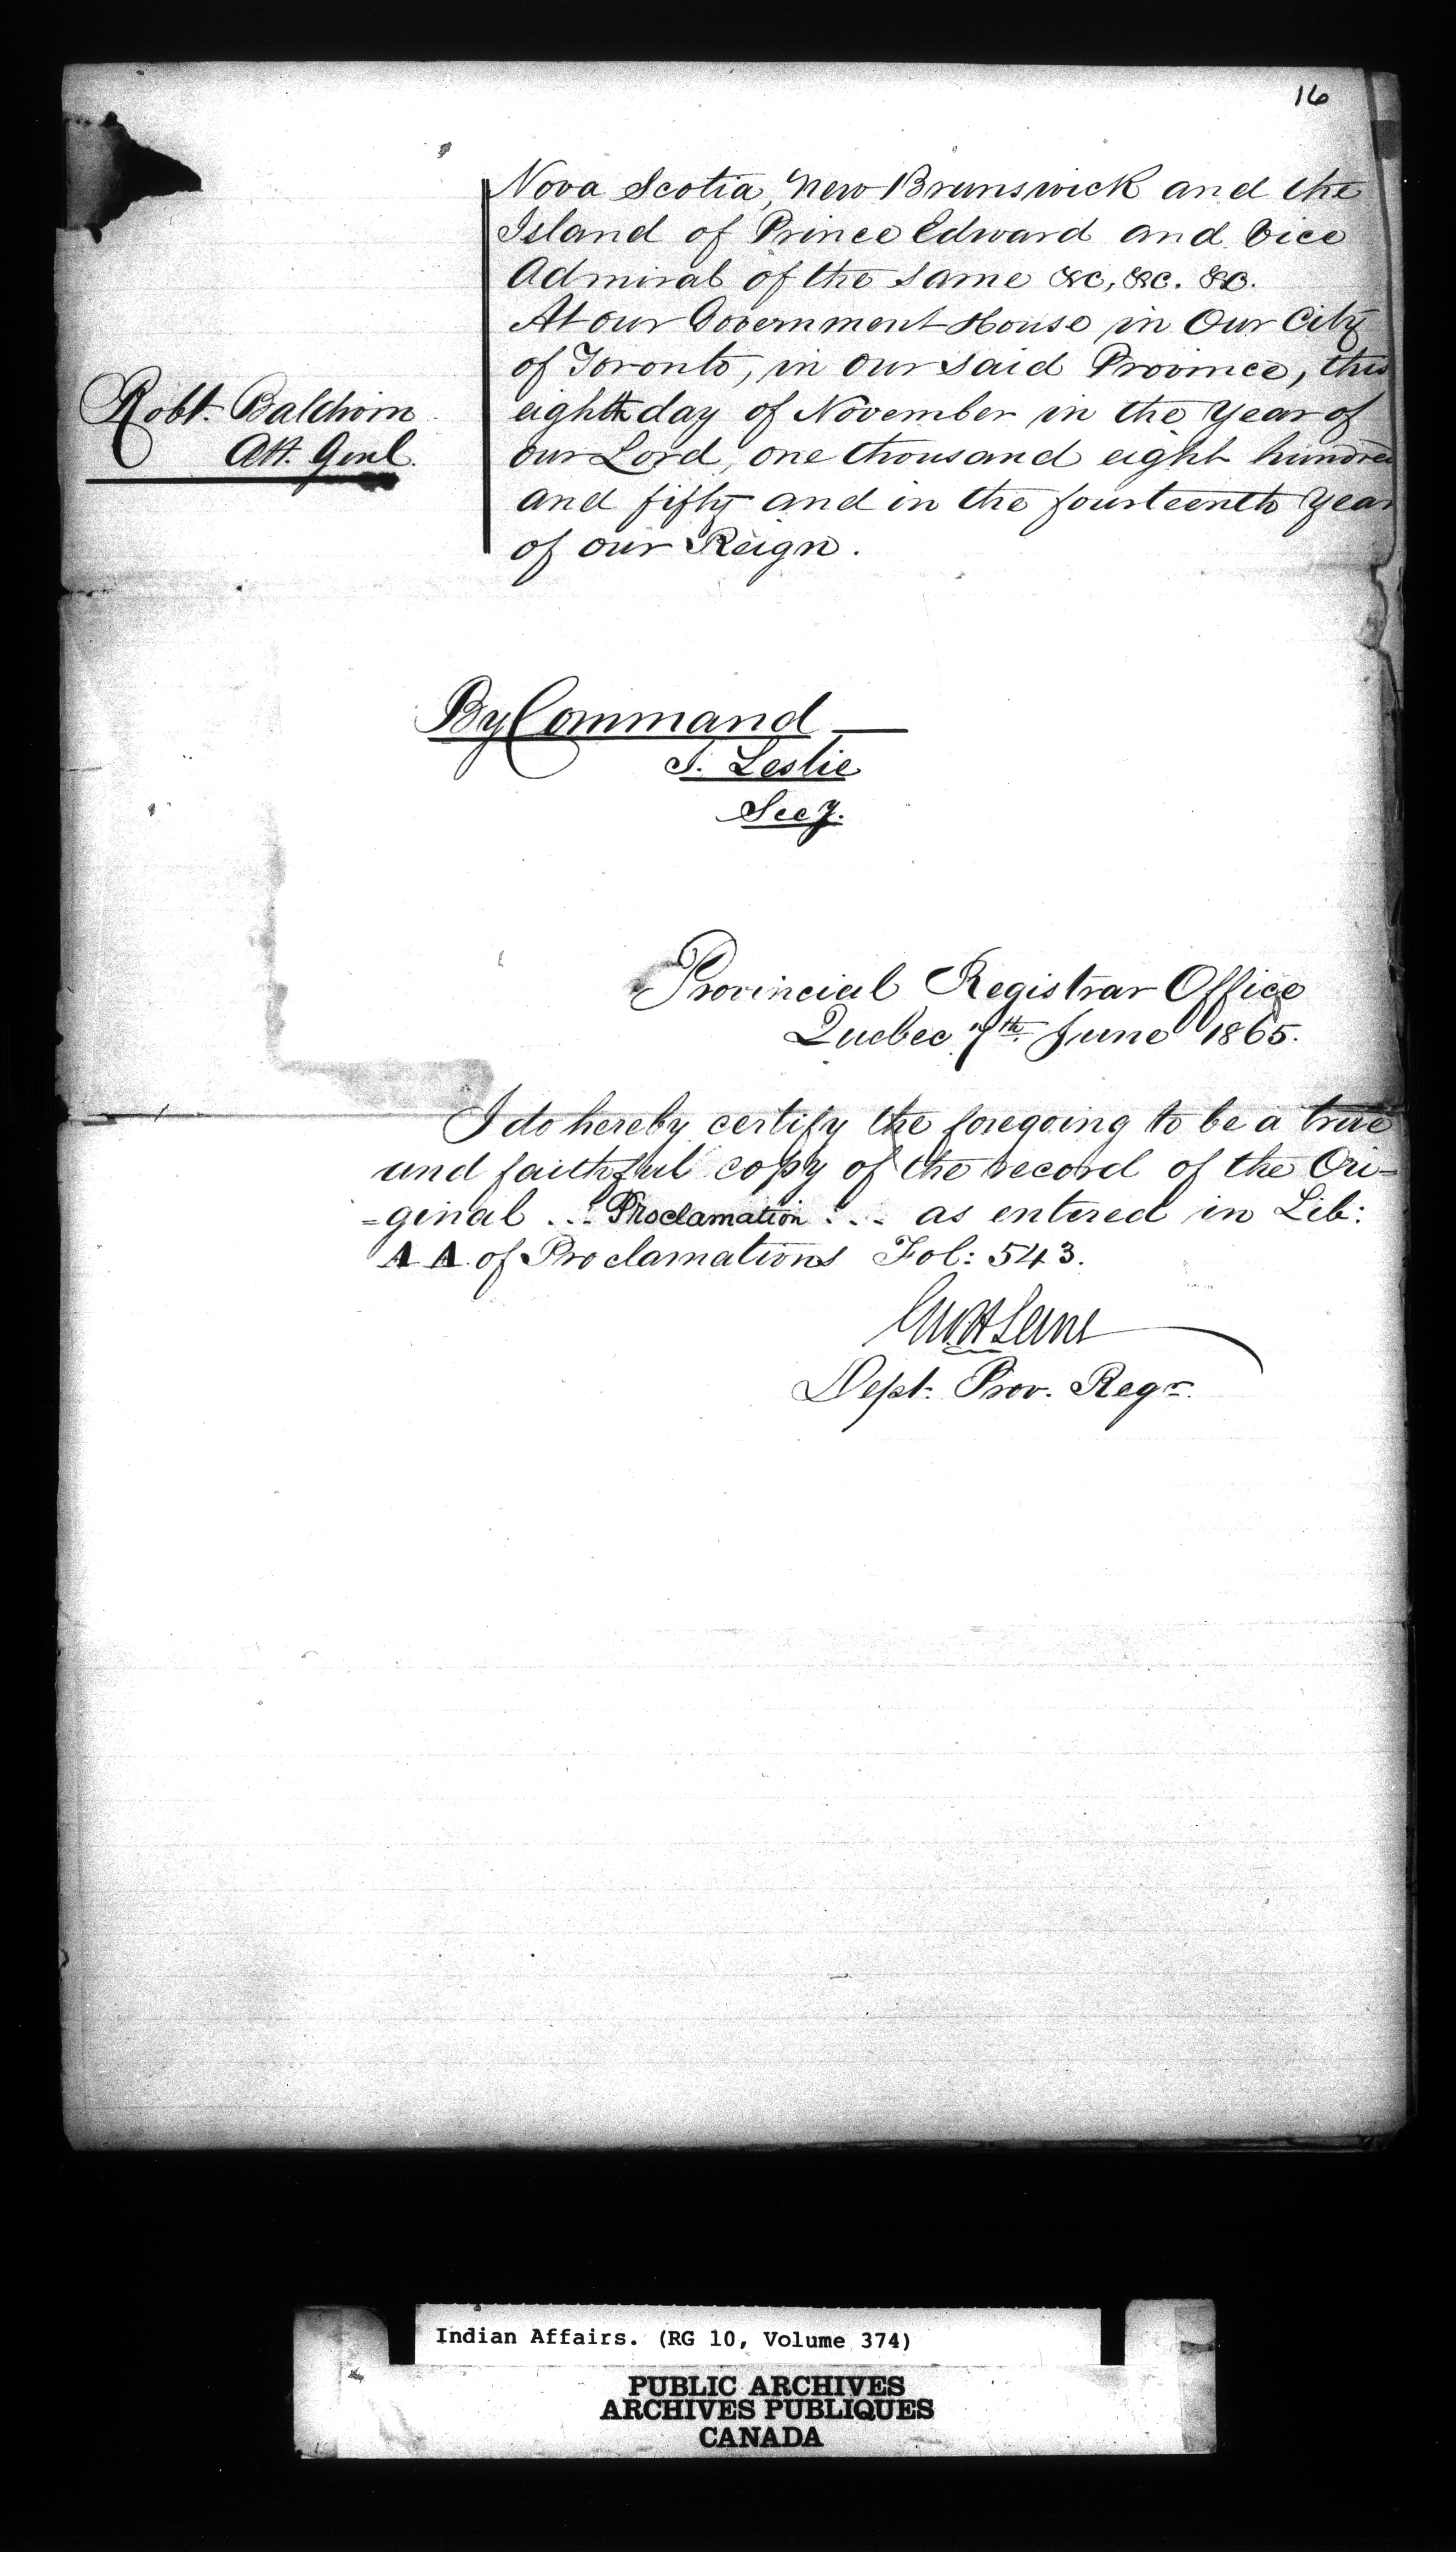 16
Nova Scotia, New Brunswick and the
Island of Prince Edward and Vice
Admiral of the same &c, &c. &c.
At our Government House in Our City
of Toronto, in our said Province, this
eighth day of November in the Year of
our Lord, one thousand eight hundred
and fifty and in the fourteenth Year
of our Reign.
Robt. Baldwin
Att. Genl.
By Command
J. Leslie
Secy.
Provincial Registrar Office
Quebec 7th June 1865.
I do hereby certify the foregoing to be a true
and faithful copy of the record of the Ori=
=ginal ... Proclamation ... as entered in Lib:
A A. of Proclamations Fol: 543.
Dept. Prov. Regr.
Indian Affairs. (RG 10, Volume 374)
PUBLIC ARCHIVES
ARCHIVES PUBLIQUES
CANADA